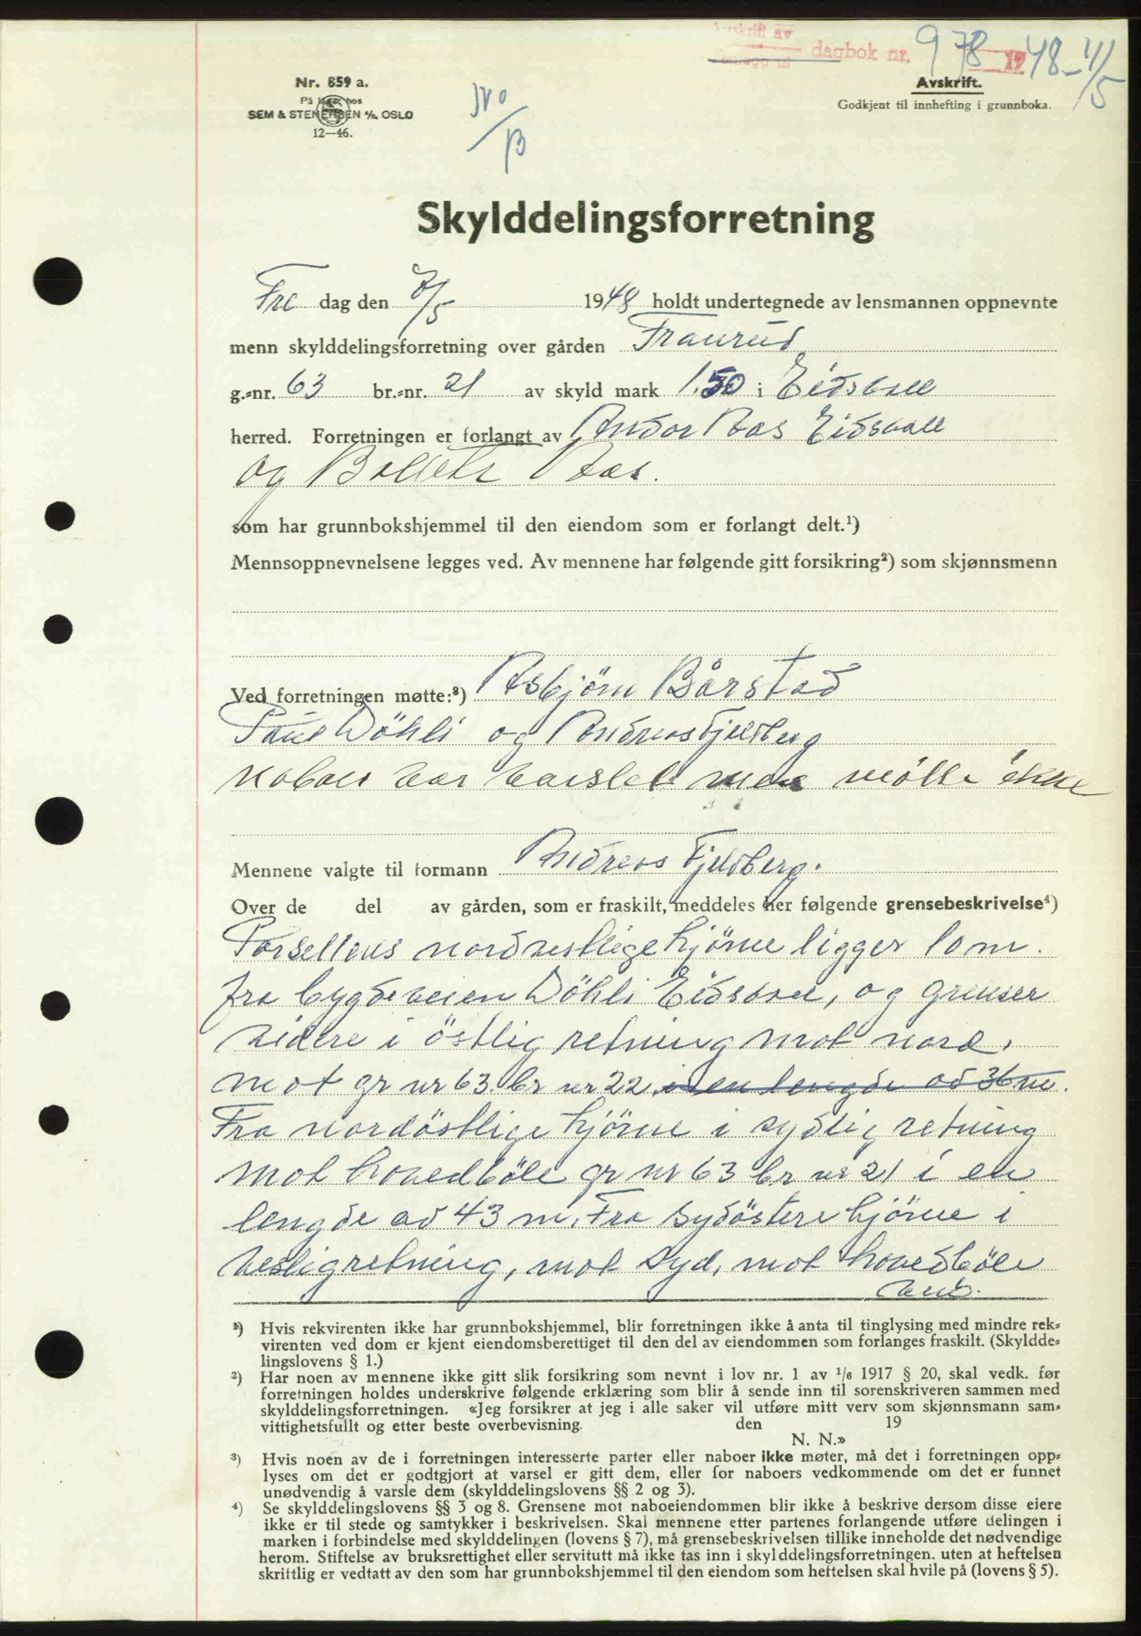 Avskrift av
dagbok nr. 978 1948 - 11/5
Nr. 859 a.
På lager hos
SEM & STENERSEN A/S, OSLO
12—46.
Avskrift.
Godkjent til innhefting i grunnboka.
Skylddelingsforretning
Fre dag den 7/5 1948 holdt undertegnede av lensmannen oppnevnte
menn skylddelingsforretning over gården Traurud
g.=nr. 63 br.=nr. 21 av skyld mark 1.50 i Eidsvoll
herred. Forretningen er forlangt av Andor Aas Eidsvoll
og Aas.
som har grunnbokshjemmel til den eiendom som er forlangt delt.¹)
Mennsoppnevnelsene legges ved. Av mennene har følgende gitt forsikring²) som skjønnsmenn
Ved forretningen møtte:³) Asbjörn Bårstad
Paul Döhli og Andreas Fjeldberg
Naboer var varslet men møtte ikke
Mennene valgte til formann Andreas Fjeldberg.
Over de del av gården, som er fraskilt, meddeles her følgende grensebeskrivelse⁴)
Parsellens nordvestlige hjörne ligger 10 m.
fra bygdeveien Döhli Eidsvoll, og grenser
videre i östlig retning mot nord,
mot gr nr 63 br nr 22 i en lengde av 36 m.
Fra nordöstlige hjörne i sydlig retning
mot hovedböle gr nr 63 br nr 21 i en
lengde av 43 m. Fra sydöstere hjörne i
vestlig retning, mot syd, mot hovedböle
²) Hvis rekvirenten ikke har grunnbokshjemmel, blir forretningen ikke å anta til tinglysing med mindre rek=
virenten ved dom er kjent eiendomsberettiget til den del av eiendommen som forlanges fraskilt. (Skyldde=
lingslovens § 1.)
²) Har noen av mennene ikke gitt slik forsikring som nevnt i lov nr. 1 av 1/6 1917 § 20, skal vedk. før
forretningen holdes underskrive følgende erklæring som blir å sende inn til sorenskriveren sammen med
skylddelingsforretningen. «Jeg forsikrer at jeg i alle saker vil utføre mitt verv som skjønnsmann sam=
vittighetsfullt og etter beste overbevisning. den 19
N. N.»
³) Hvis noen av de i forretningen interesserte parter eller naboer ikke møter, må det i forretningen opp=
lyses om det er godtgjort at varsel er gitt dem, eller for naboers vedkommende om det er funnet
unødvendig å varsle dem (skylddelingslovens §§ 2 og 3).
⁴) Se skylddelingslovens §§ 3 og 8. Grensene mot naboeiendommen blir ikke å beskrive dersom disse eiere
ikke er til stede og samtykker i beskrivelsen. Skal mennene etter partenes forlangende utføre delingen i
marken i forbindelse med skylddelingen (lovens § 7), må grensebeskrivelsen tillike inneholde det nødvendige
herom. Stiftelse av bruksrettighet eller servitutt må ikke tas inn i skylddelingsforretningen. uten at heftelsen
skriftlig er vedtatt av den som har grunnbokshjemmel til den eiendom som heftelsen skal hvile på (lovens § 5).